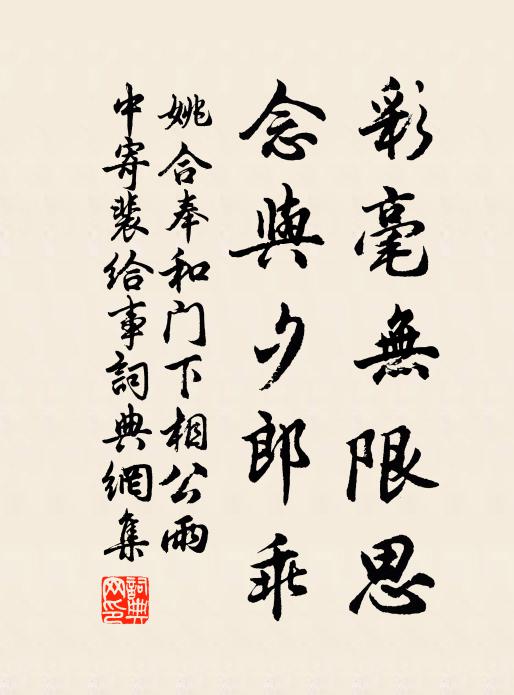 彩毫無限思
念與夕郎乖
姚合奉和门下相公雨
中寄裴给事詞典網集
詞典
网印